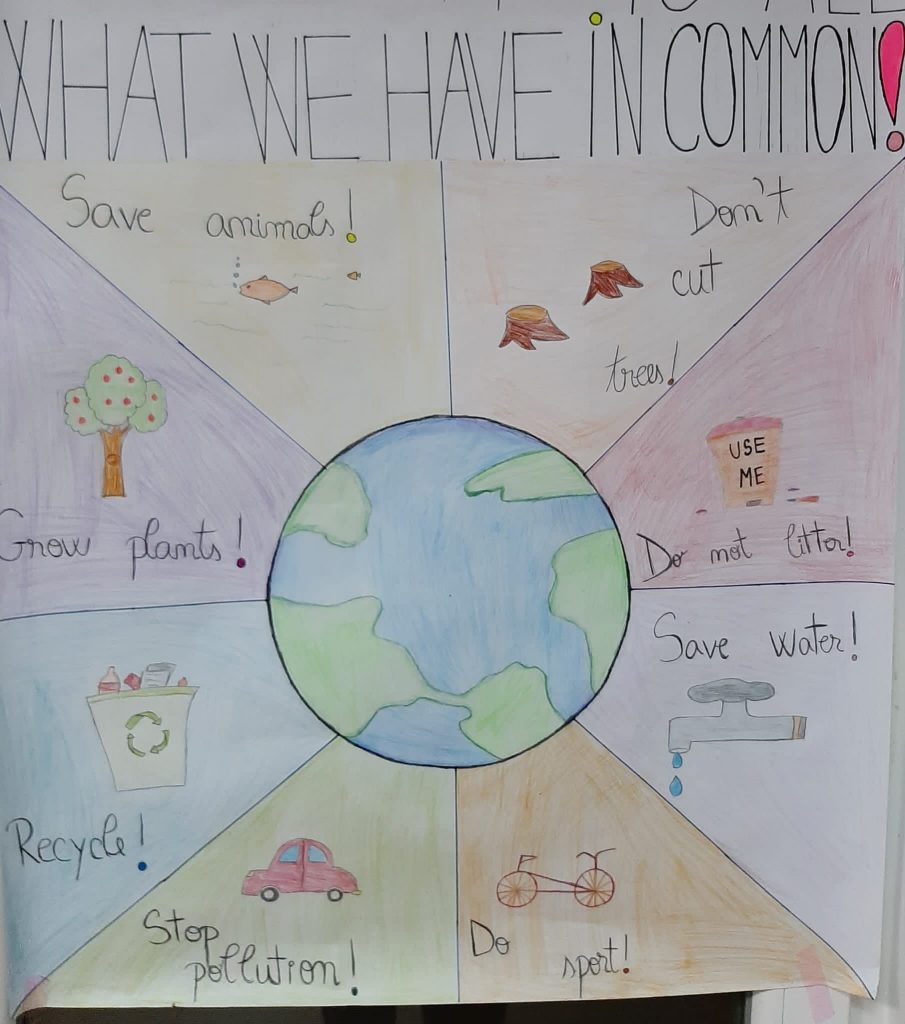 WHAT WE HAVE iN COMMON!
Save animals!
Don't
cut
trees!
USE
ME
Do not litter!
Save water!
Do
sport!
Stop
pollution!
Recycle!
Grow plants!